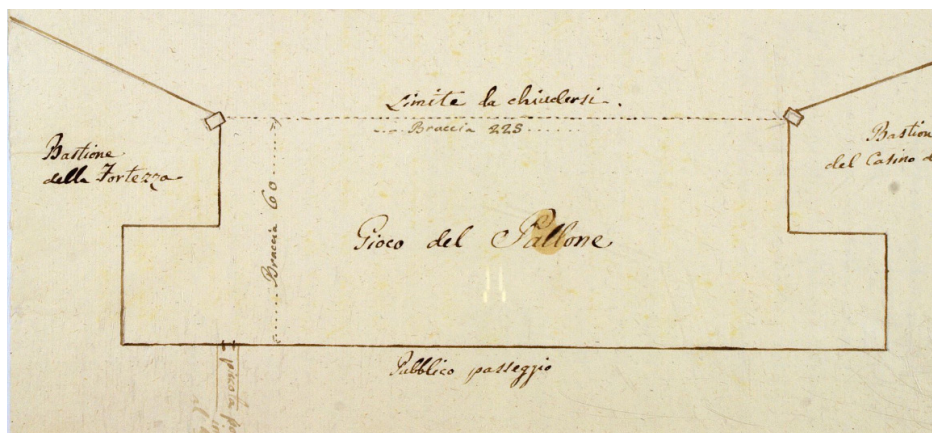 Limite da chiudersi.
Braccia 225
Bastione
della Fortezza
Bastion
del Casino d
Braccia 60
Gioco del Pallone
Pubblico passeggio
piccola